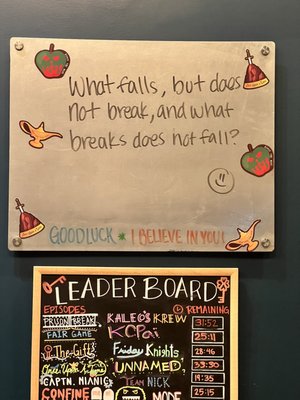 What falls, but does
not break, and what
breaks does not fall?
GOODLUCK * I BELIEVE IN YOU!
LEADER BOARD
EPISODES
REMAINING
PRISON BREAK KALEO'S KREW 31:52
FAIR GAME KCPai 25:11
The Gift Friday Knights 28:46
UNNAMED 33:30
CAPTN. MANIC TEAM NICK 19:35
CONFINE NODE 25:15